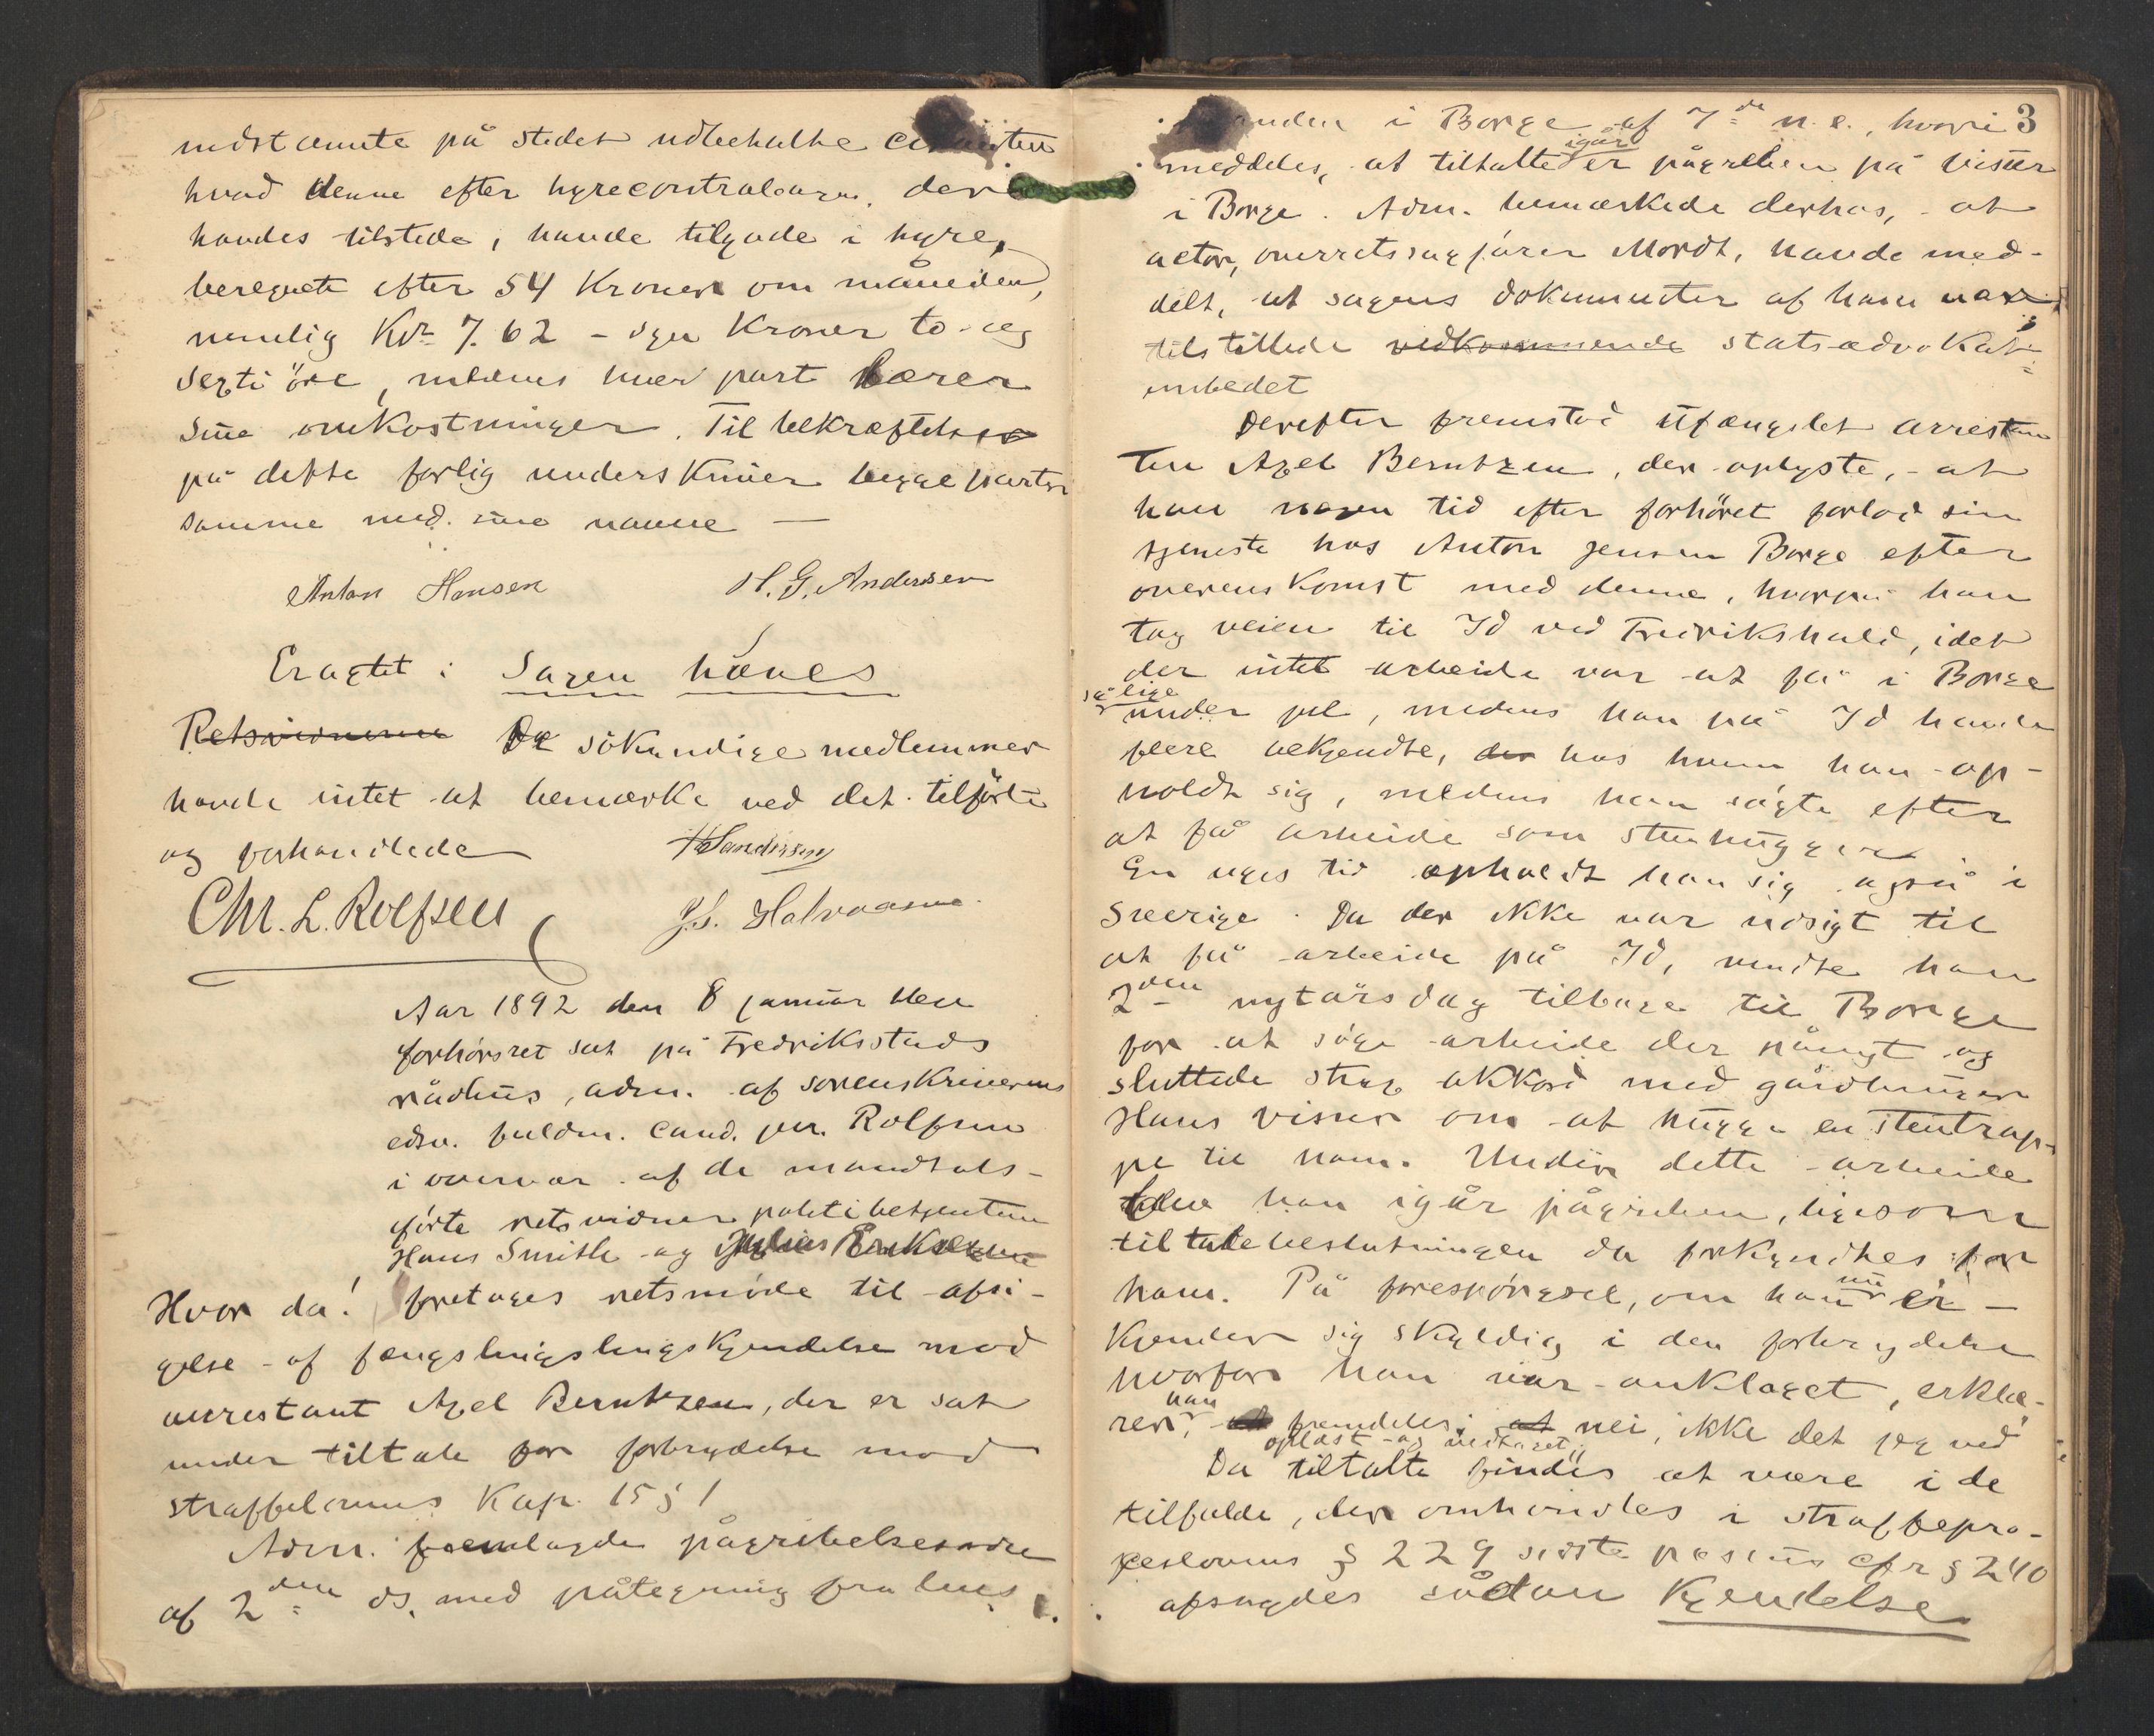 indstævnte på stedet udbetalte citanten
hvad denne efter hyrecontrabogen, der
havdes tilstede, havde tilgode i hyre,
beregnet efter 54 Kroner om måneden,
nemlig Kr 7.62 – syv Kroner to og
sexti öre, medens hver part bærer
sine omkostninger. Til bekræftelse
på dette forlig underskriver begge parter
samme med sine navne —
Anton Hansen H. G. Andersen
Eragtet: Sagen hæves
Retsvidnerne De sökyndige medlemmer
havde intet at bemærke ved det tilförte
og forhandlede
Chr. L. Rolfsen J. S. Halvorsen
Aar 1892 den 8 januar blev
forhörsret sat på Fredriksstads
rådhus, adm. af sorenskriverens
edsv. fuldm. cand. jur. Rolfsen
i overvær af de mandtals-
förte retsvidner politibetjentene
Hans Smith og Julius Eriksen
Hvor da! foretoges retsmöde til afsi-
gelse af fængslingslingskjendelse mod
arrestant Axel Berntzen, der er sat
under tiltale for forbrydelse mod
straffelovens Kap. 15 § 1
Adm. fremlagde pågribelsesordre
af 2den ds. med påtegning fra lens
manden i Borge af 7de n. e., hvori 3
meddeles, at tiltalte igår er pågreben på Visur
i Borge. Adm. bemærkede derhos, at
actor, overretssagförer Mordt, havde med-
delt, at sagens dokumenter af ham var
tilstillede vedkommende statsadvokat-
embedet
Derefter fremstod ufængslet arrestan
ten Axel Berntzen, der oplyste, at
han nogen tid efter forhöret forlod sin
tjeneste hos Anton Jensen Borge efter
overenskomst med denne, hvorpå han
tog veien til Id ved Fredrikshald, idet
der intet arbeide var at få i Borge
således under jul, medens han på Id havde
flere bekjendte, der hos hvem han op-
holdt sig, medens han sögte efter
at få arbeide som stenhugger
En uges tid opholdt han sig også i
Sverige. Da der ikke var udsigt til
at få arbeide på Id, vendte han
2den nytårsdag tilbage til Borge
for at söge arbeide der påny og
sluttede strax akkord med gårdbruger
Hans Visur om at hugge en stentrap-
pe til ham. Under dette arbeide
blev han igår pågreben, ligesom
tiltalebeslutningen da forkyndtes for
ham. På forespörgsel, om han nu er-
kjender sig skyldig i den forbrydelse
hvorfor han var anklaget, erklæ-
rer han, at fremdeles: at nei, ikke det jeg ved
oplæst og vedtaget
Da tiltalte findes at være i de
tilfælde, der omhandles i straffepro-
ceslovens § 229 sidste passus cfr § 240
afsagdes sådan Kjendelse